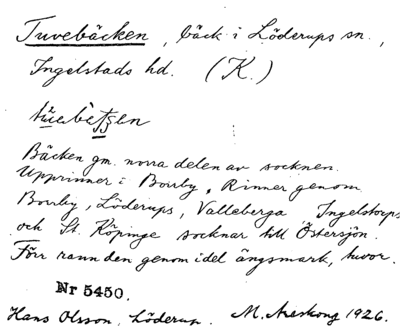 Tuvebäcken, bäck i Löderups sn.,
Ingelstads hd. (K.)
Bäcken gm. norra delen av socknen.
Upprinner i Borrby, Rinner genom
Borrby, Löderups, Valleberga Ingelstorps
och St. Köpinge socknar till Östersjön.
Förr rann den genom idel ängsmark, huvor.
Nr 5450.
Hans Olsson, Löderup. M. Areskog 1926.